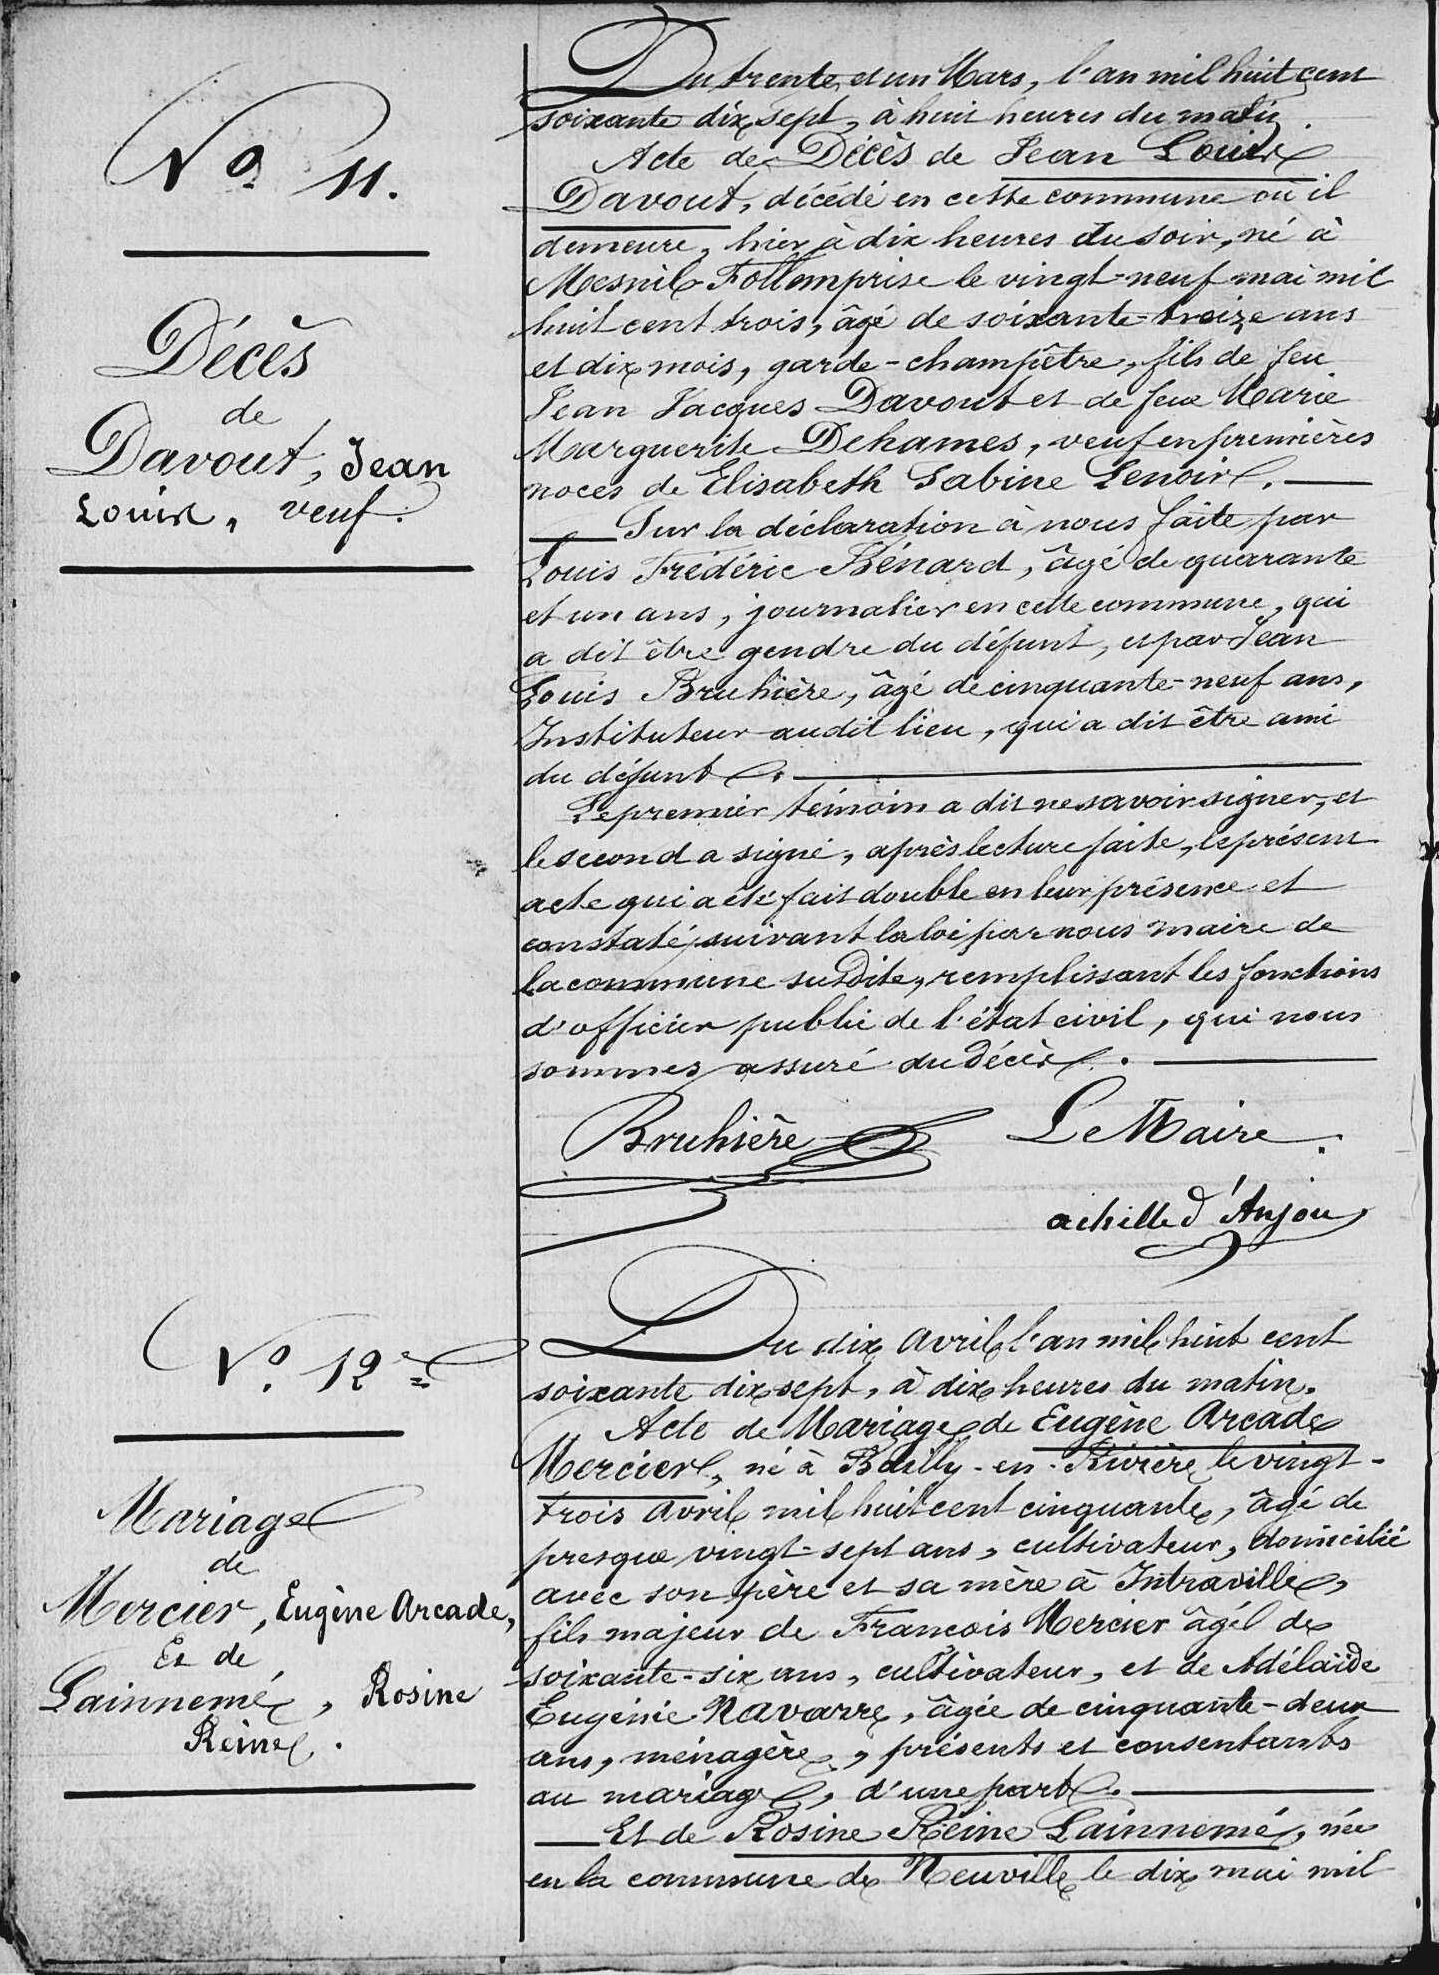 No 11.
Décès
de
Davout, Jean
Louis, veuf.
Du trente et un Mars, l'an mil huit cent
soixante dix sept, à huit heures du matin.
Acte de Décès de Jean Louis
Davout, décédé en cette commune où il
demeure, hier à dix heures du soir, né à
Mesnil-Follemprise le vingt-neuf mai mil
huit cent trois, âgé de soixante-treize ans
et dix mois, garde-champêtre, fils de feu
Jean Jacques Davout et de feue Marie
Marguerite Dehames, veuf en premières
noces de Elisabeth Sabine Lenoir.
Sur la déclaration à nous faite par
Louis Frédéric Bénard, âgé de quarante
et un ans, journalier en cette commune, qui
a dit être gendre du défunt, et par Jean
Louis Bruhière, âgé de cinquante-neuf ans,
Instituteur audit lieu, qui a dit être ami
du défunt.
Le premier témoin a dit ne savoir signer, et
le second a signé, après lecture faite, le présent
acte qui a été fait double en leur présence et
constaté suivant la loi par nous maire de
la commune susdite, remplissant les fonctions
d'officier public de l'état civil, qui nous
sommes assuré du décès.
Bruhière Le Maire.
achille d'Anjou
No. 12
Mariage
de
Mercier, Eugène Arcade,
Et de
Lainnemé, Rosine
Reine.
Du dix avril l'an mil huit cent
soixante dix sept, à dix heures du matin.
Acte de Mariage de Eugène Arcade
Mercier, né à Bailly-en-Rivière le vingt-
trois avril mil huit cent cinquante, âgé de
presque vingt-sept ans, cultivateur, domicilié
avec son père et sa mère à Intraville,
fils majeur de François Mercier âgé de
soixante-six ans, cultivateur, et de Adélaïde
Eugénie Navarre, âgée de cinquante-deux
ans, ménagère, présents et consentants
au mariage, d'une part.
Et de Rosine Reine Lainnemé, née
en la commune de Neuville le dix mai mil